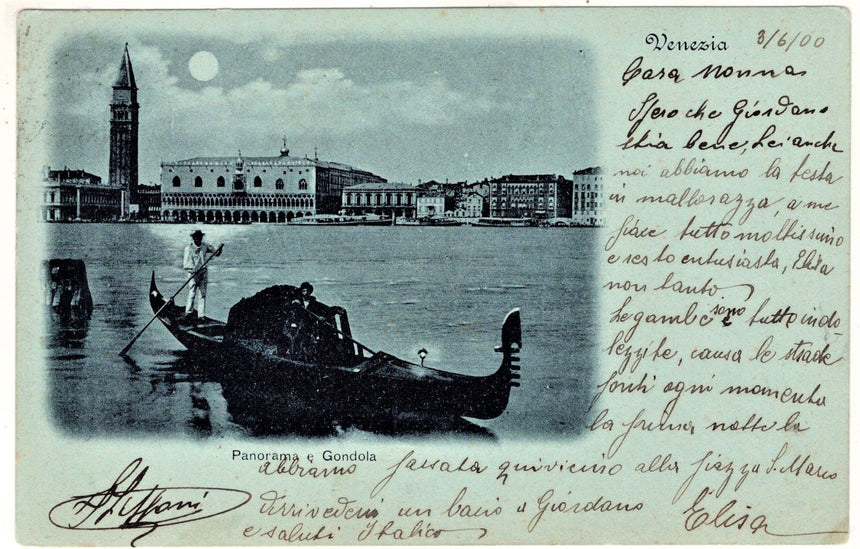 Venezia 3/6/00
Cara Nonna
Spero che Giordano
stia bene, Lei anche
noi abbiamo la testa
in mallorazza, a me
piace tutto moltissimo
e resto entusiasta, Elisa
non tanto
Le gambe sono tutte indo-
lezzite, causa le strade
ponti ogni momento
la prima notte la
Panorama e Gondola
abbiamo passata quivicino alla piazza S. Marco
Arrivederci un bacio a Giordano
e saluti Italico
Elisa